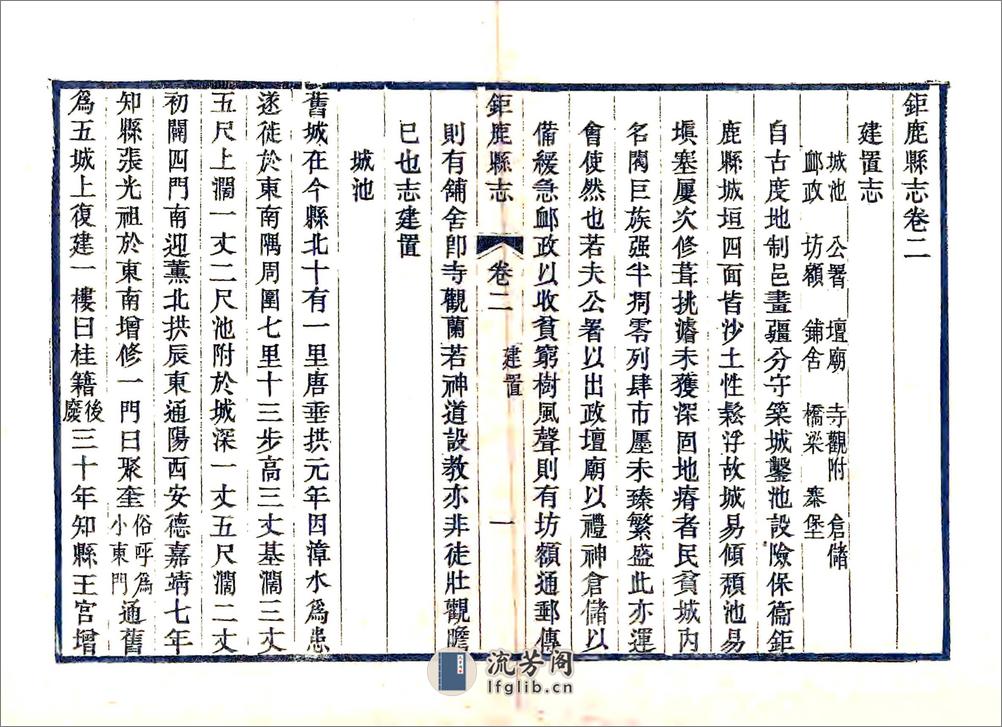 鉅鹿縣志卷二
建置志
城池　公署　壇廟　寺觀附　倉儲
邮政　坊額　鋪舍　橋梁　寨堡
自古度地制邑畫疆分守築城鑿池設險保衞鉅
鹿縣城垣四面皆沙土性鬆浮故城易傾頹池易
塡塞屢次修葺挑濬未獲深固地瘠者民貧城內
名閥巨族强半凋零列肆市廛未臻繁盛此亦運
會使然也若夫公署以出政壇廟以禮神倉儲以
備緩急邮政以收貧窮樹風聲則有坊額通郵傳
鉅鹿縣志
卷二
建置
一
則有鋪舍卽寺觀蘭若神道設教亦非徒壯觀瞻
已也志建置
城池
舊城在今縣北十有一里唐垂拱元年因漳水爲患
遂徙於東南隅周圍七里十三步高三丈基濶三丈
五尺上濶一丈二尺池附於城深一丈五尺濶二丈
初闢四門南迎薰北拱辰東通陽西安德嘉靖七年
知縣張光祖於東南增修一門曰聚奎俗呼爲小東門通舊
爲五城上復建一樓曰桂籍後廢三十年知縣王官增
流芳阁
lfglib.cn